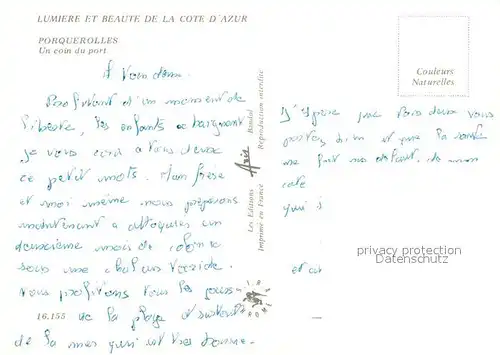 LUMIERE ET BEAUTE DE LA COTE D'AZUR
PORQUEROLLES
Un coin du port
A Vous deux.
Profitant d'un moment de
liberté, les enfants se baignent
je vous écris à vous deux
ce petit mots. Mon frère
et moi même nous préparons
maintenant a attaquer un
deuxième mois de colonie
sous une chaleur torride.
Nous profitons tous les jours
de la plage et surtout
de la mer qui est très bonne.
16.155
Les Editions Aris Bandol
Imprimé en France Reproduction interdite
Couleurs
Naturelles
J'espère que vous deux vous
portez bien et que la santé
ne fait pas défaut. de mon
coté
qui s
et
privacy protection
Datenschutz